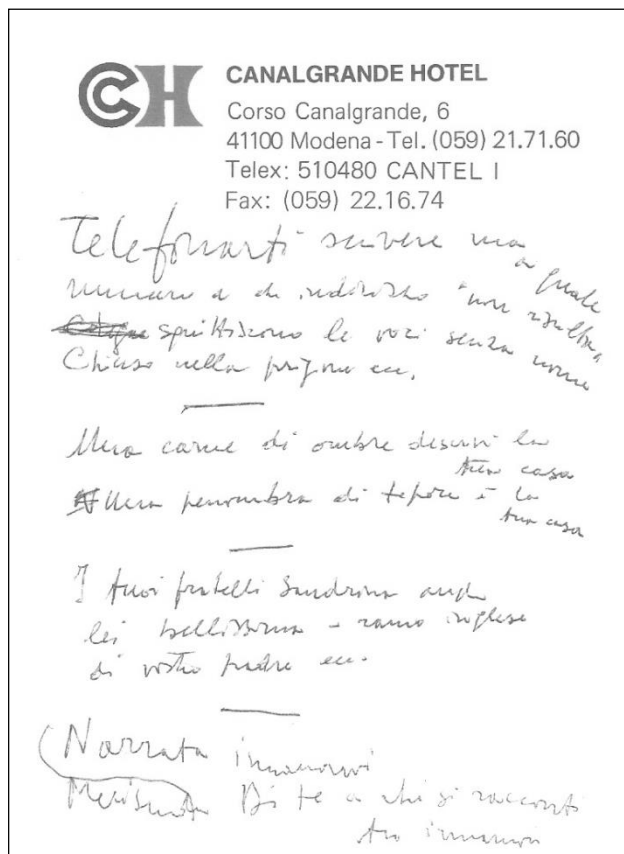 CH
CANALGRANDE HOTEL
Corso Canalgrande, 6
41100 Modena - Tel. (059) 21.71.60
Telex: 510480 CANTEL I
Fax: (059) 22.16.74
Telefonarti scrivere ma
a quale
numero a che indirizzo "non risulta"
le voci senza nome
Chiuso nella prigione ecc.
Una carne di ombre descrivi la
tua casa
Una penombra di tepore è la
tua casa
I tuoi fratelli Sandrina anche
lei bellissima - ramo inglese
di vostro padre ecc.
Narrata innamori
Di te a chi si racconti